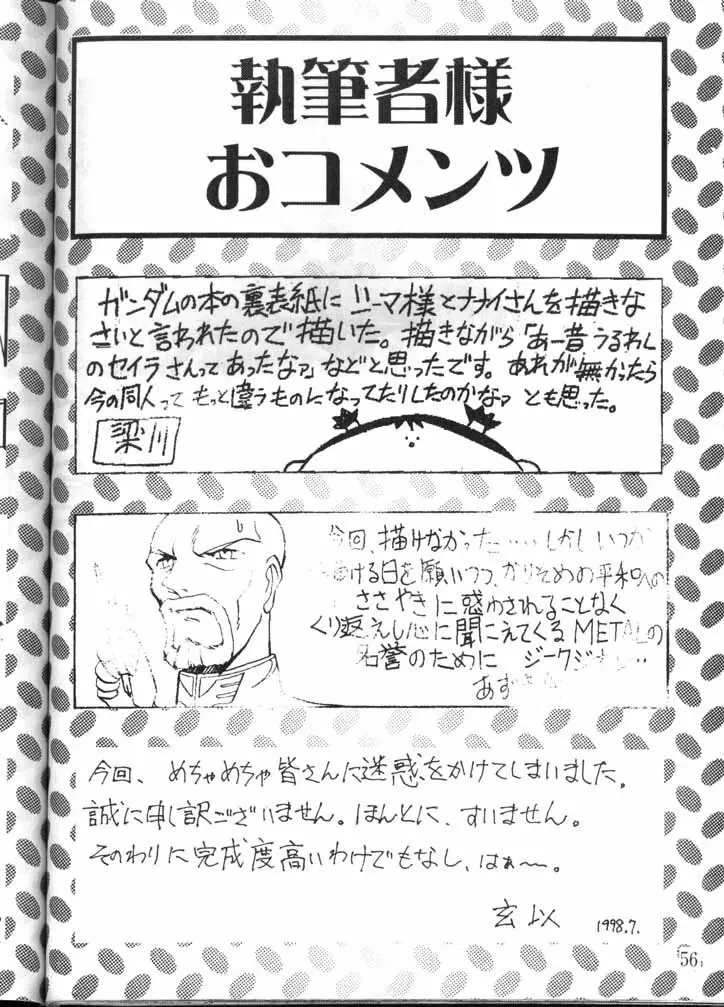 執筆者様
おコメンツ
ガンダムの本の裏表紙にシーマ様とナナイさんを描きな
さいと言われたので描いた。描きながら「あー昔うるわし
のセイラさんってあったなァ」などと思ったです。あれが無かったら
今の同人って もっと違うものになってたりしたのかなァ とも思った。
梁川
今回、描けなかった……しかしいつか
ける日を願いつつ、かりそめの平和への
ささやきに惑わされることなく
くり返えし心に聞こえてくるMETALの
名誉のために ジークジオン…
あず
今回、めちゃめちゃ皆さんに迷惑をかけてしまいました。
誠に申し訳ございません。ほんとに、すいません。
そのわりに完成度高いわけでもなし、はぁ〜。
玄以 1998.7.
56